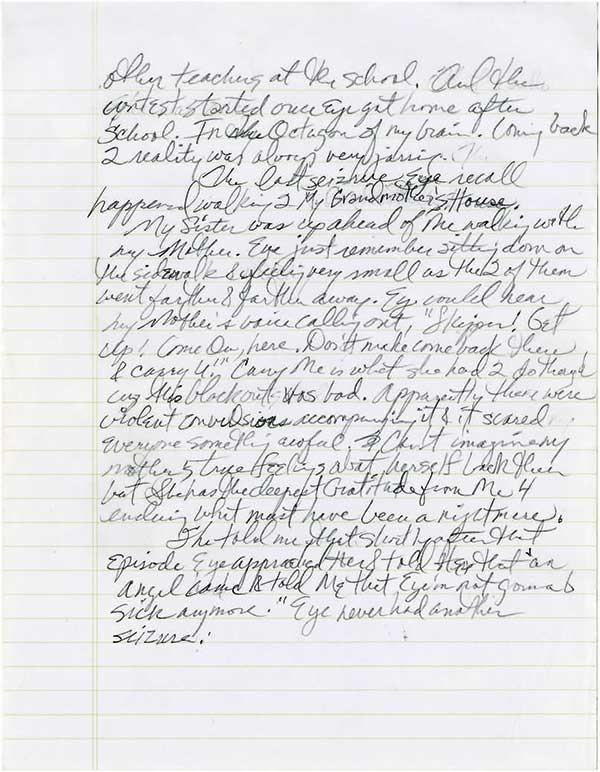 other teaching at the school. And the
contest started once Eye got home after
School. In the Octagon of my brain. Coming back
2 reality was always very jarring.
The last seizure Eye recall
happened walking 2 My Grandmother's House.
My Sister was up ahead of Me walking with
my Mother. Eye just remember sitting down on
the sidewalk & feeling very small as the 2 of them
went farther & farther away. Eye could hear
my Mother's voice calling out, "Skipper! Get
up! Come On, here. Don't make come back there
& carry U!" Carry Me is what she had 2 do though
cuz this blackout was bad. Apparently there were
violent convulsions accompanying it & it scared
everyone something awful. Eye Can't imagine my
mother's true feelings about herself back then
but She has the deepest Gratitude from Me 4
enduring what must have been a nightmare.
She told me that shortly after that
Episode Eye approached Her & told Her that "an
angel came & told Me that Eye'm not gonna b
sick anymore." Eye never had another
seizure.